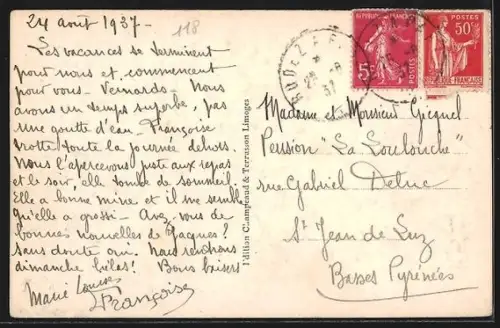 24 août 1937-
118
Les vacances se terminent
pour nous et commencent
pour vous - Veinards - Nous
avons un temps superbe, pas
une goutte d'eau - Françoise
trotte toute la journée dehors.
Nous l'apercevons juste aux repas
et le soir, elle tombe de sommeil.
Elle a bonne mine et il me semble
qu'elle a grossi - Avez-vous de
bonnes nouvelles de Jaques?
sans doute oui. Nous rentrons
dimanche hélas! Bons baisers
Marie Louise
Françoise
Edition Champeaud & Terrusson Limoges
RODEZ
REPUBLIQUE FRANÇAISE
5c
POSTES
50c
REPUBLIQUE FRANÇAISE
Madame et Monsieur Gicquel
Pension "La Loulouche"
rue Gabriel Deluc
St Jean de Luz
Basses Pyrénées